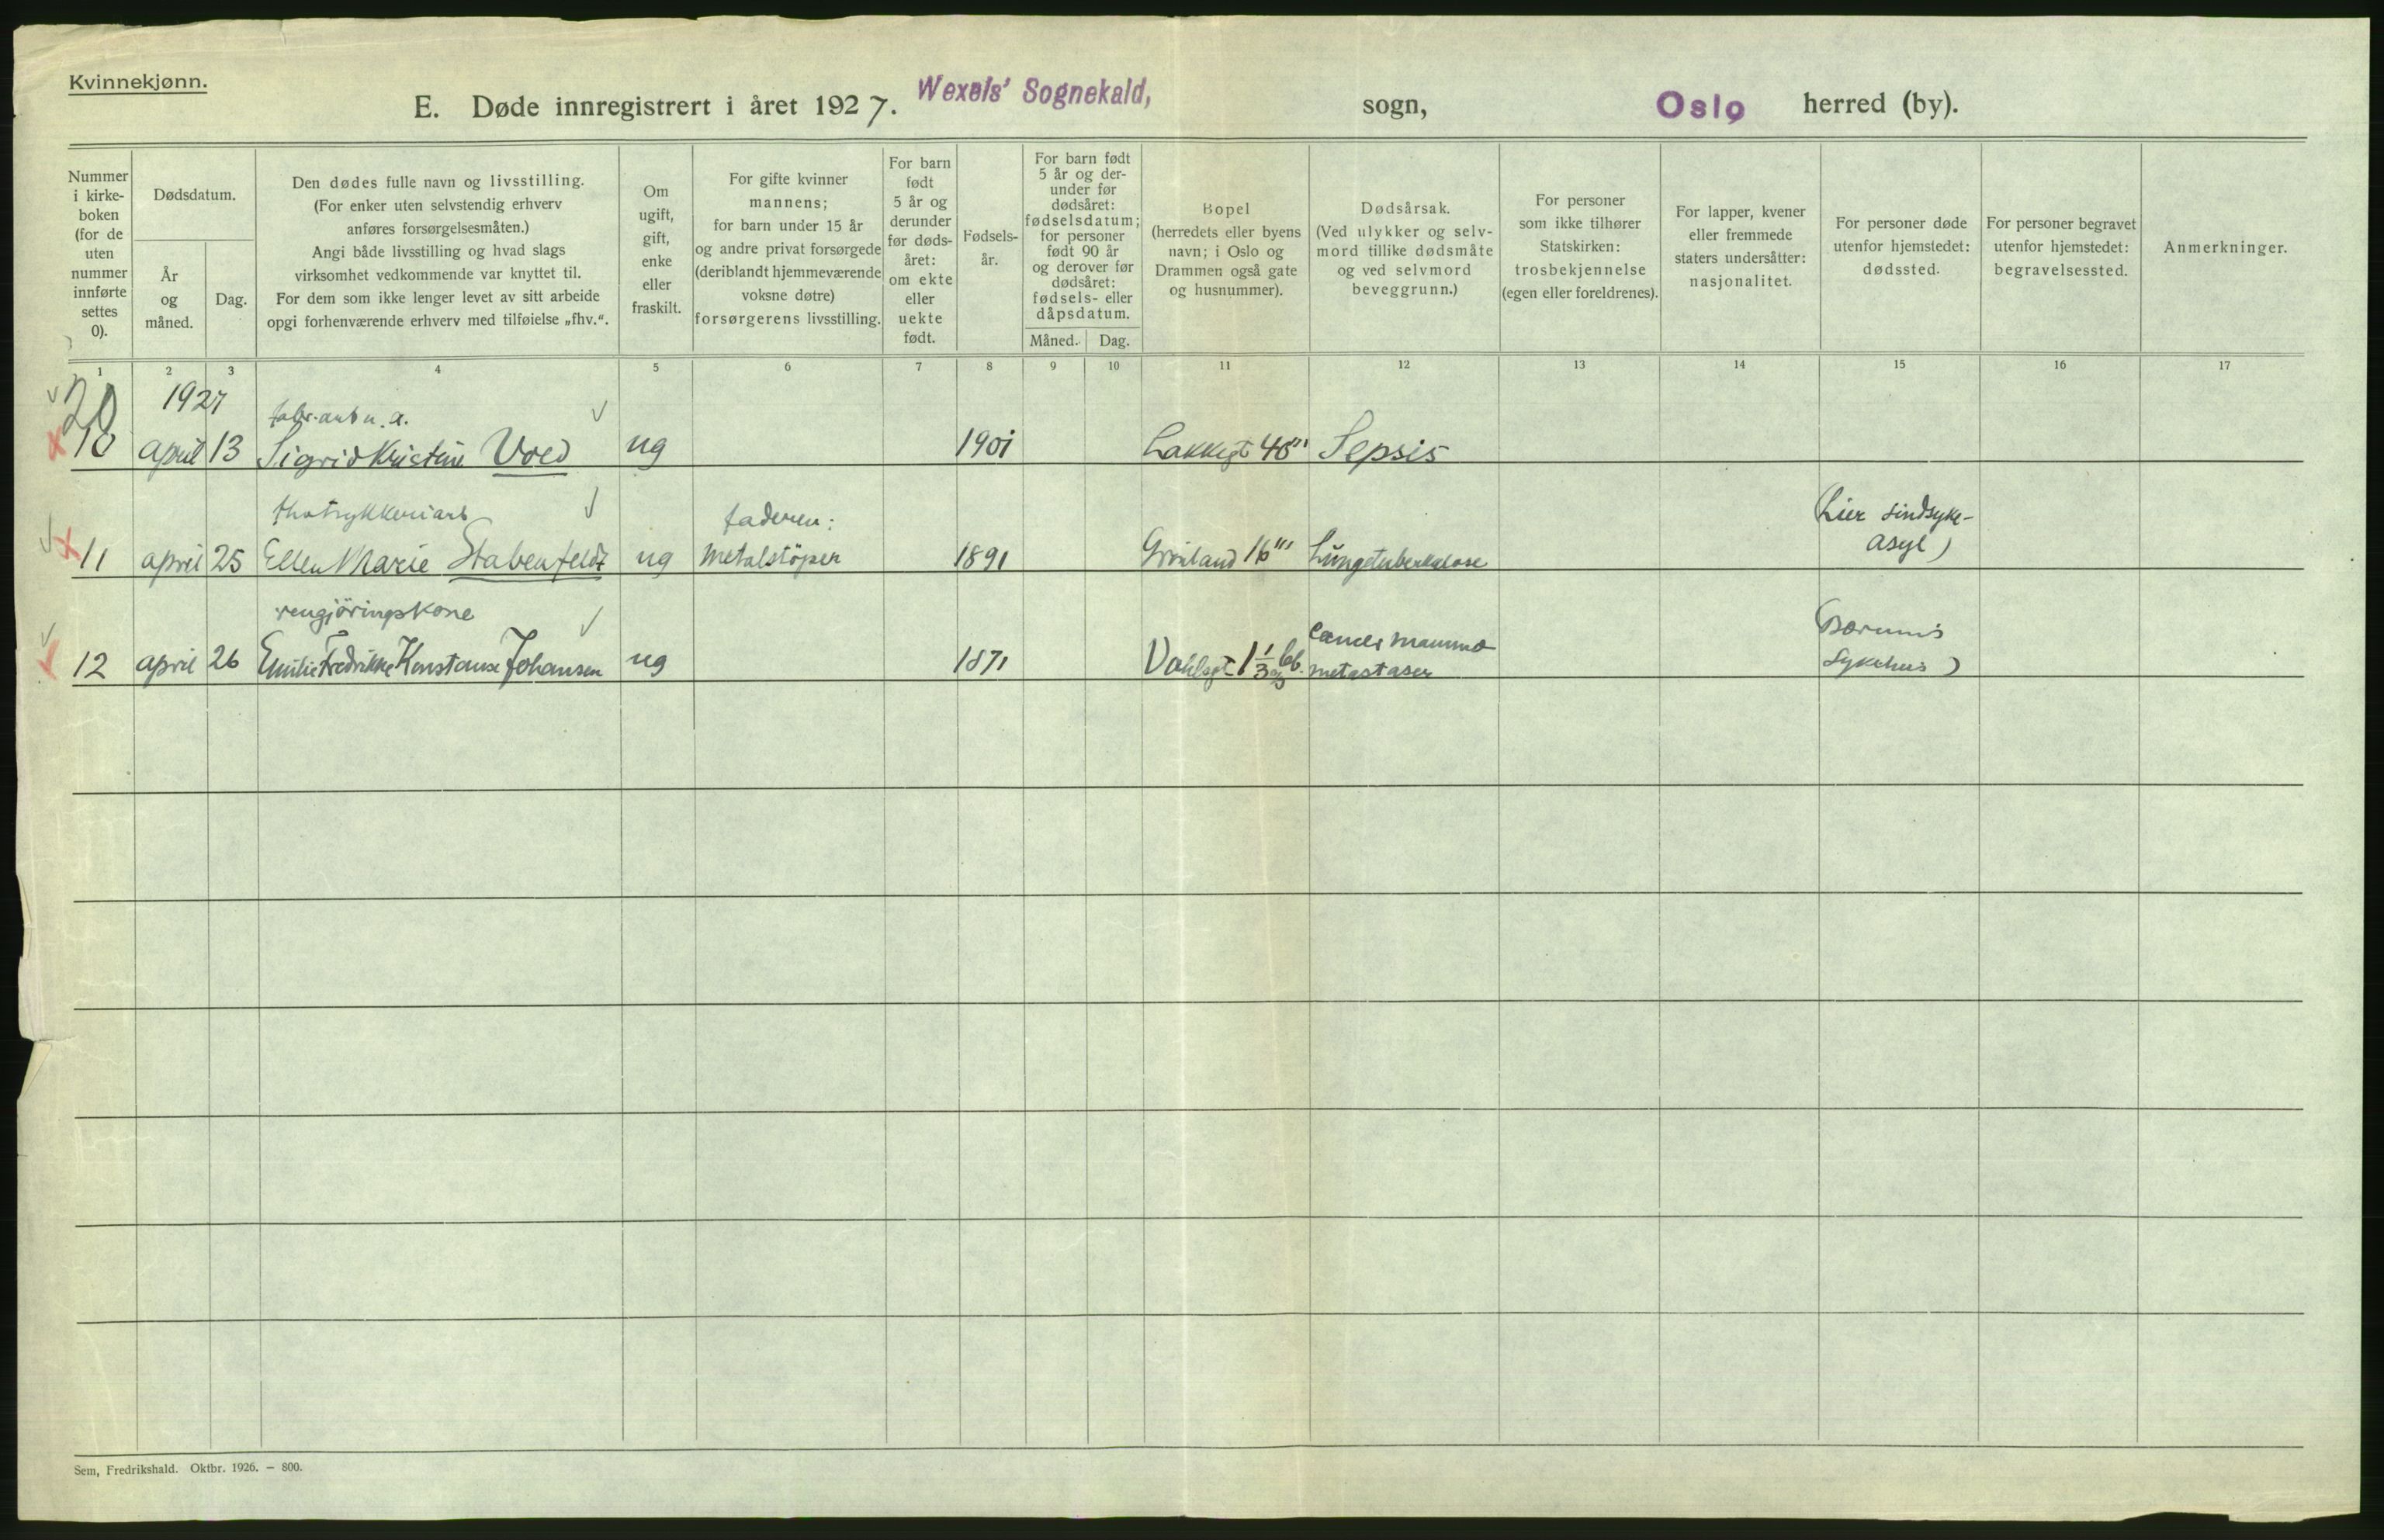 Kvinnekjønn.
E. Døde innregistrert i året 1927. Wexels' Sognekald, sogn, Oslo herred (by).
Nummer i kirke-boken (for de uten nummer innførte settes 0).
Dødsdatum.
År og måned.
Dag.
Den dødes fulle navn og livsstilling.
(For enker uten selvstendig erhverv
anføres forsørgelsesmåten.)
Angi både livsstilling og hvad slags
virksomhet vedkommende var knyttet til.
For dem som ikke lenger levet av sitt arbeide
opgi forhenværende erhverv med tilføielse „fhv.“.
Om
ugift,
gift,
enke
eller
fraskilt.
For gifte kvinner
mannens;
for barn under 15 år
og andre privat forsørgede
(deriblandt hjemmeværende
voksne døtre)
forsørgerens livsstilling.
For barn
født
5 år og
derunder
før døds-
året:
om ekte
eller
uekte
født.
Fødsels-
år.
For barn født
5 år og der-
under før
dødsåret:
fødselsdatum;
for personer
født 90 år
og derover før
dødsåret:
fødsels- eller
dåpsdatum.
Måned.
Dag.
Bopel
(herredets eller byens
navn; i Oslo og
Drammen også gate
og husnummer).
Dødsårsak.
(Ved ulykker og selv-
mord tillike dødsmåte
og ved selvmord
beveggrunn.)
For personer
som ikke tilhører
Statskirken:
trosbekjennelse
(egen eller foreldrenes).
For lapper, kvener
eller fremmede
staters undersåtter:
nasjonalitet.
For personer døde
utenfor hjemstedet:
dødssted.
For personer begravet
utenfor hjemstedet:
begravelsessted.
Anmerkninger.
1 2 3 4 5 6 7 8 9 10 11 12 13 14 15 16 17
20
1927
10 april 13 Sigrid Kristine ug 1901 Lakkegt Sepsis
faderen: (Lier sindsyke-
11 april 25 Ellen Marie Stabenfeldt ug metalstöper 1891 Grönland 16''' Lungetuberkulose asyl)
rengjöringskone cancer mamma (Bærums
12 april 26 Emilie Fredrikke Konstanse Johansen ug 1871 Vahlsgt metastaser sykehus)
Sem, Fredrikshald. Oktbr. 1926. – 800.